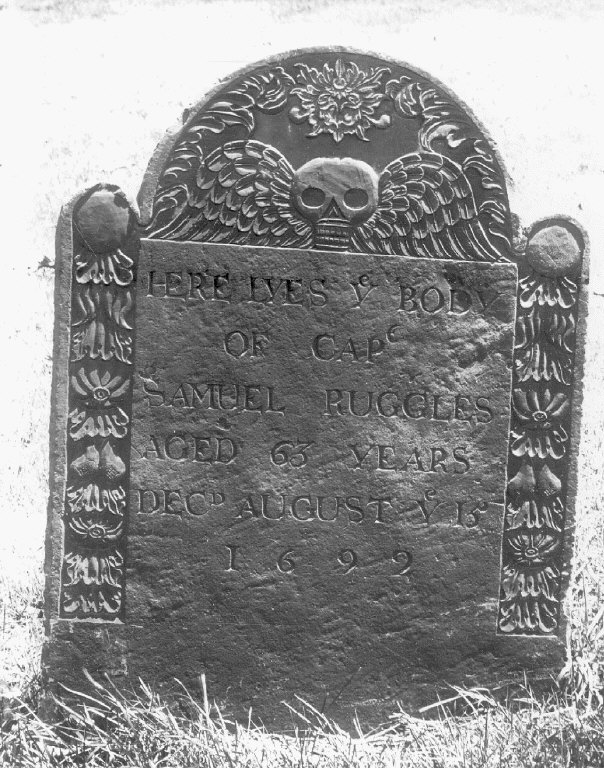 HERE LYES Yᵉ BODY
OF CAPᵗ
SAMUEL RUGGLES
AGED 63 YEARS
DECᴰ AUGUST Yᵉ 15
1692